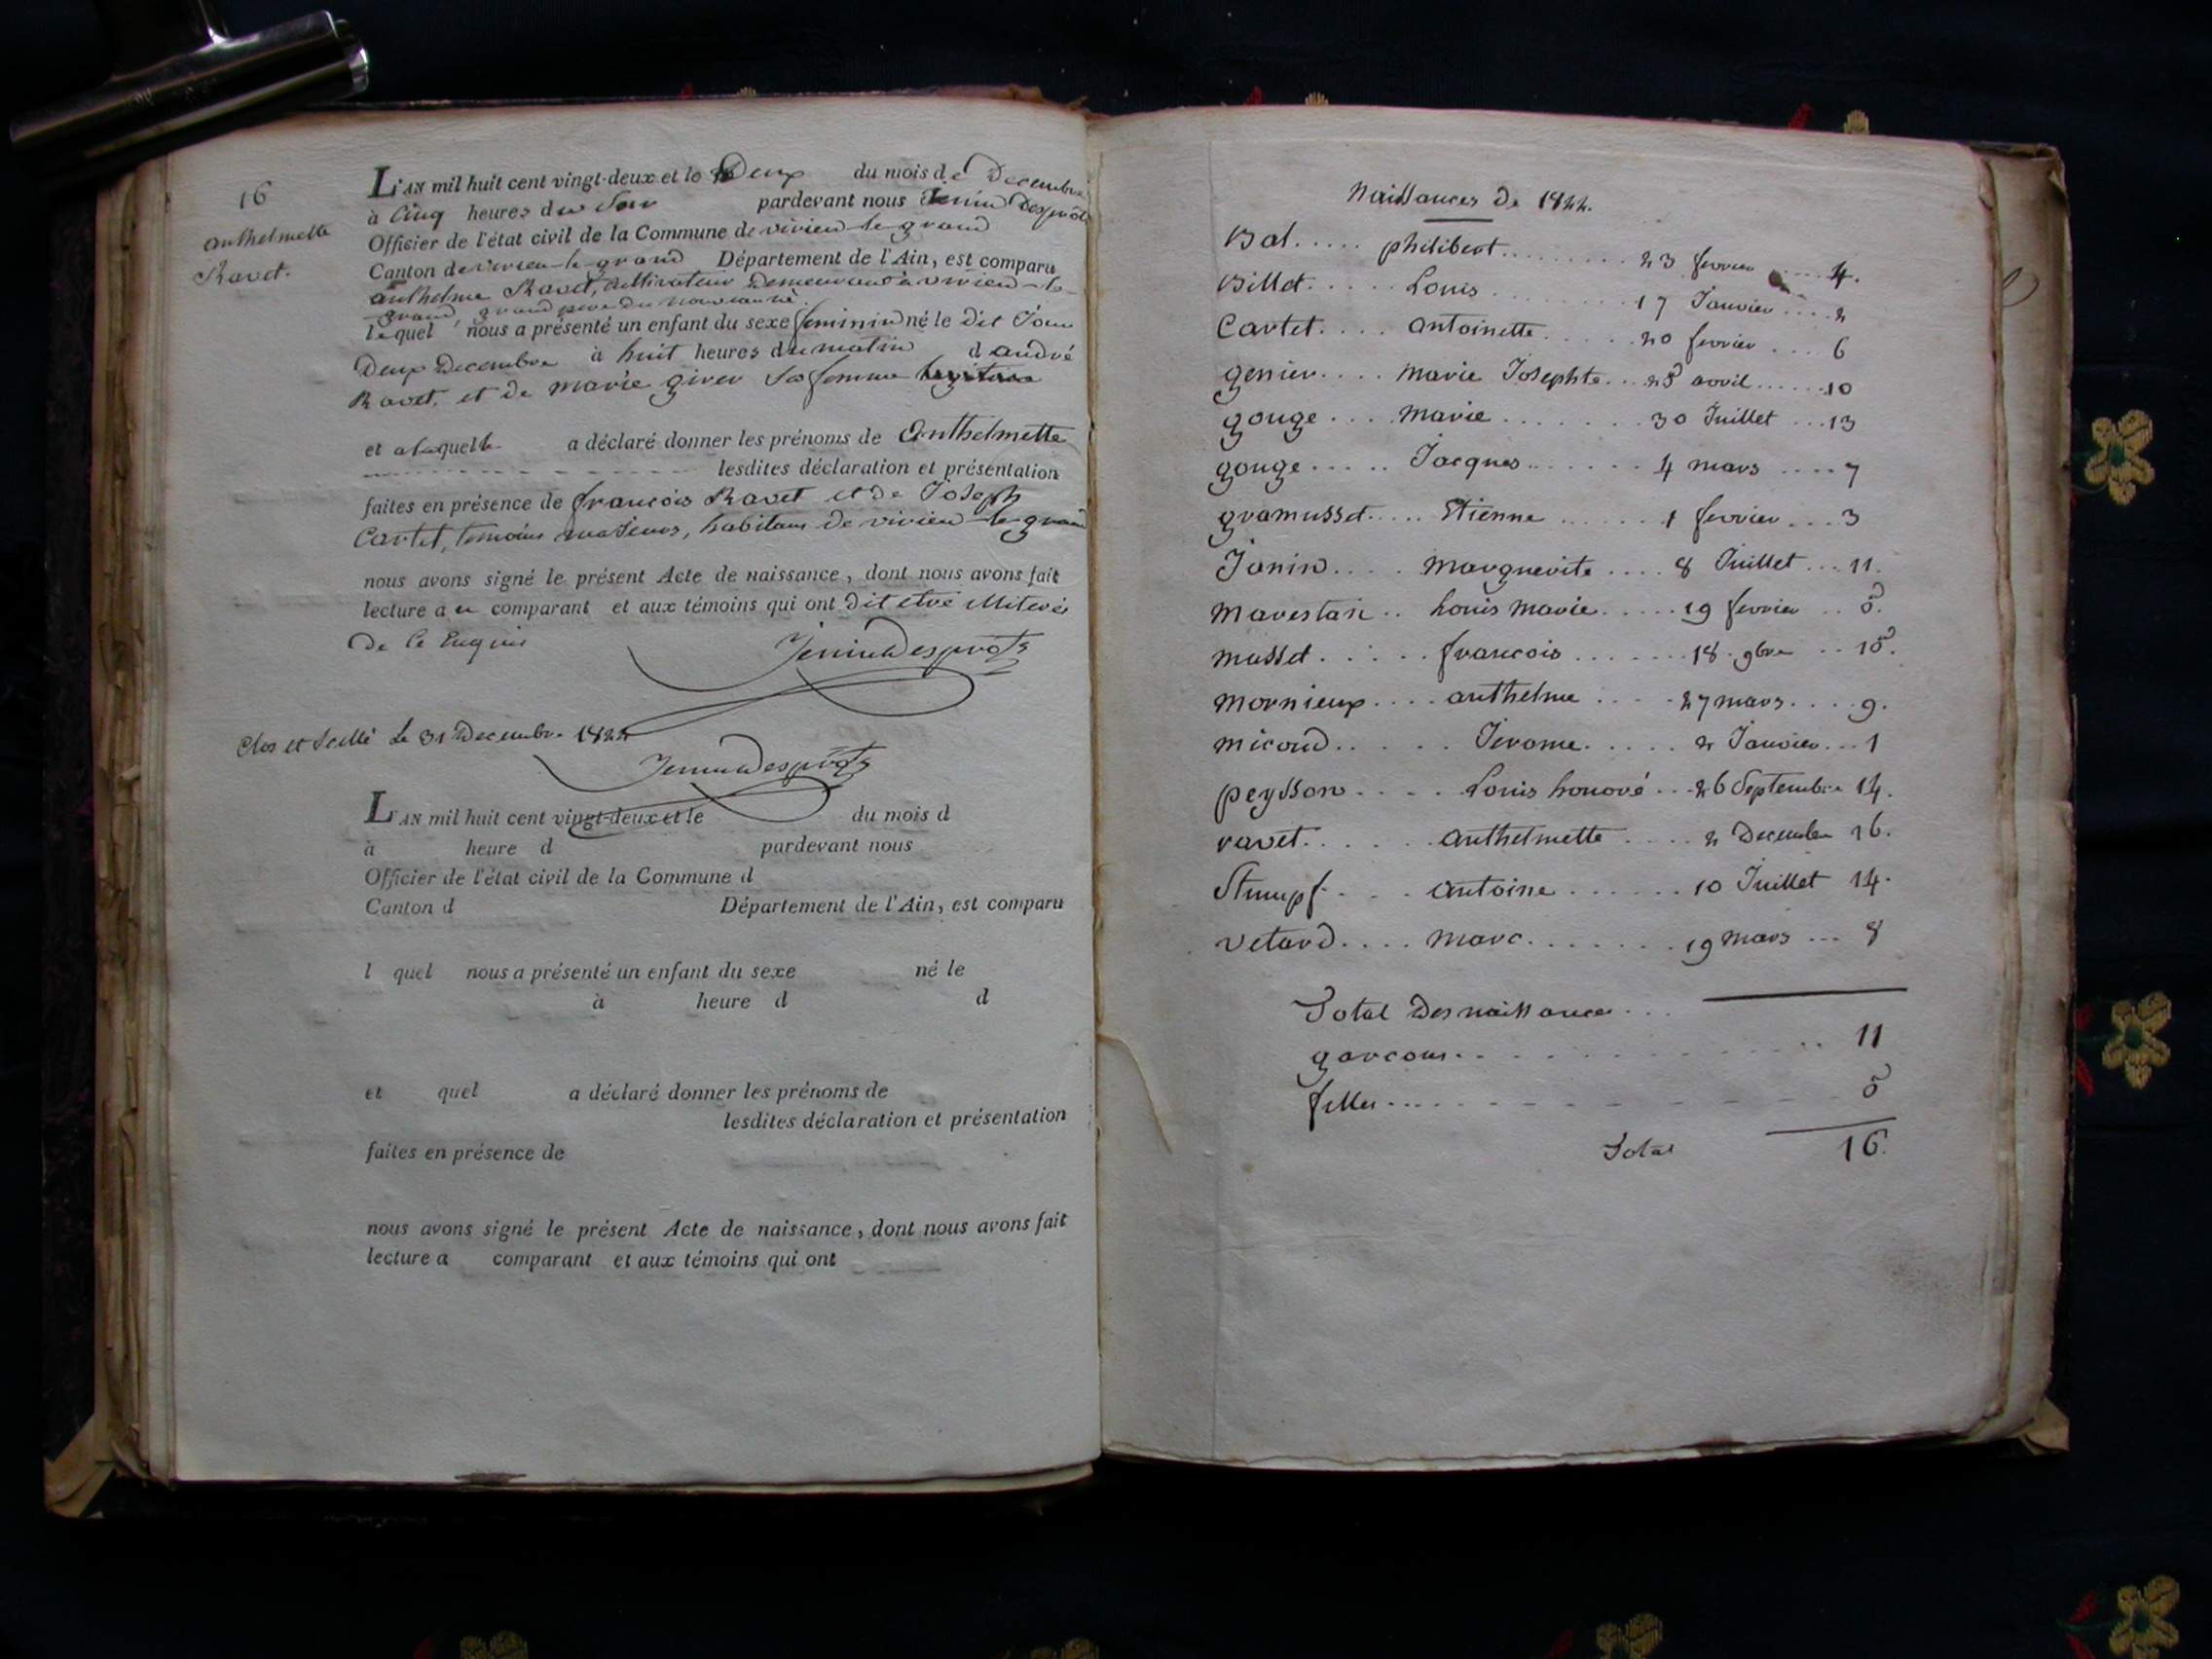 16
anthelmette
Ravet.
L'AN mil huit cent vingt-deux et le Deux du mois de Decembre
à Cinq heures du Soir pardevant nous Jenin Desprôts
Officier de l'état civil de la Commune de virieu-le-grand
Canton de virieu-le-grand Département de l'Ain, est comparu
anthelme Ravet, cultivateur Demeurant à virieu-le-
grand, grand pere du nouveau né.
lequel nous a présenté un enfant du sexe feminin né le Dit Jour
Deux Decembre à huit heures du matin d andré
Ravet, et de marie girer sa femme
et a laquelle a déclaré donner les prénoms de Anthelmette
lesdites déclaration et présentation
faites en présence de françois Ravet et de Joseph
Cartet, temoins majeurs, habitans de virieu-le-grand
nous avons signé le présent Acte de naissance, dont nous avons fait
lecture au comparant et aux témoins qui ont Dit etre illiterés
De ce Enquis
Jenin Desprôts
Clos et Scellé Le 31 Decembre 1822
Jenin Desprôts
L'AN mil huit cent vingt-deux et le du mois d
à heure d pardevant nous
Officier de l'état civil de la Commune d
Canton d Département de l'Ain, est comparu
l quel nous a présenté un enfant du sexe né le
à heure d d
et quel a déclaré donner les prénoms de
lesdites déclaration et présentation
faites en présence de
nous avons signé le présent Acte de naissance, dont nous avons fait
lecture a comparant et aux témoins qui ont
Naissances De 1822.
Bal..... philibert......... 23 fevrier .... 4.
Billet..... Louis ........ 17 Janvier .... 2
Cartet.... antoinette..... 20 fevrier .... 6
genier.... marie Josephte... 25 avril...... 10
gouge.... marie....... 30 Juillet ... 13
gouge..... Jacques....... 4 mars .... 7
gramusset..... Etienne ...... 1 fevrier ... 3
Janin.... marguerite .... 8 Juillet ... 11.
marestan.. Louis marie..... 19 fevrier .. 5.
musset...... françois ...... 18. 9bre .. 15.
mornieux.... anthelme .... 27 mars.... 9.
micoud...... Jerome..... 2 Janvier... 1
peysson..... Louis honoré... 26 Septembre 14.
ravet....... anthelmette .... 2 Decembre 16.
Stumpf.... antoine ...... 10 Juillet 14.
vetard.... marc....... 19 mars ... 8
Total Des naissances...
garcons........ 11
filles........ 5
Total 16.